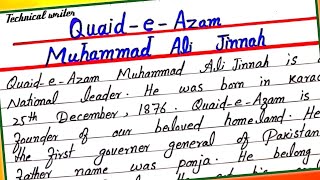 Technical writer
Quaid-e-Azam
Muhammad Ali Jinnah
Quaid-e-Azam Muhammad Ali Jinnah is a
National leader. He was born in Karac
25th December, 1876. Quaid-e-Azam is
founder of our beloved homeland. He
the first governer general of Pakistan
Father name was ponja. He belong